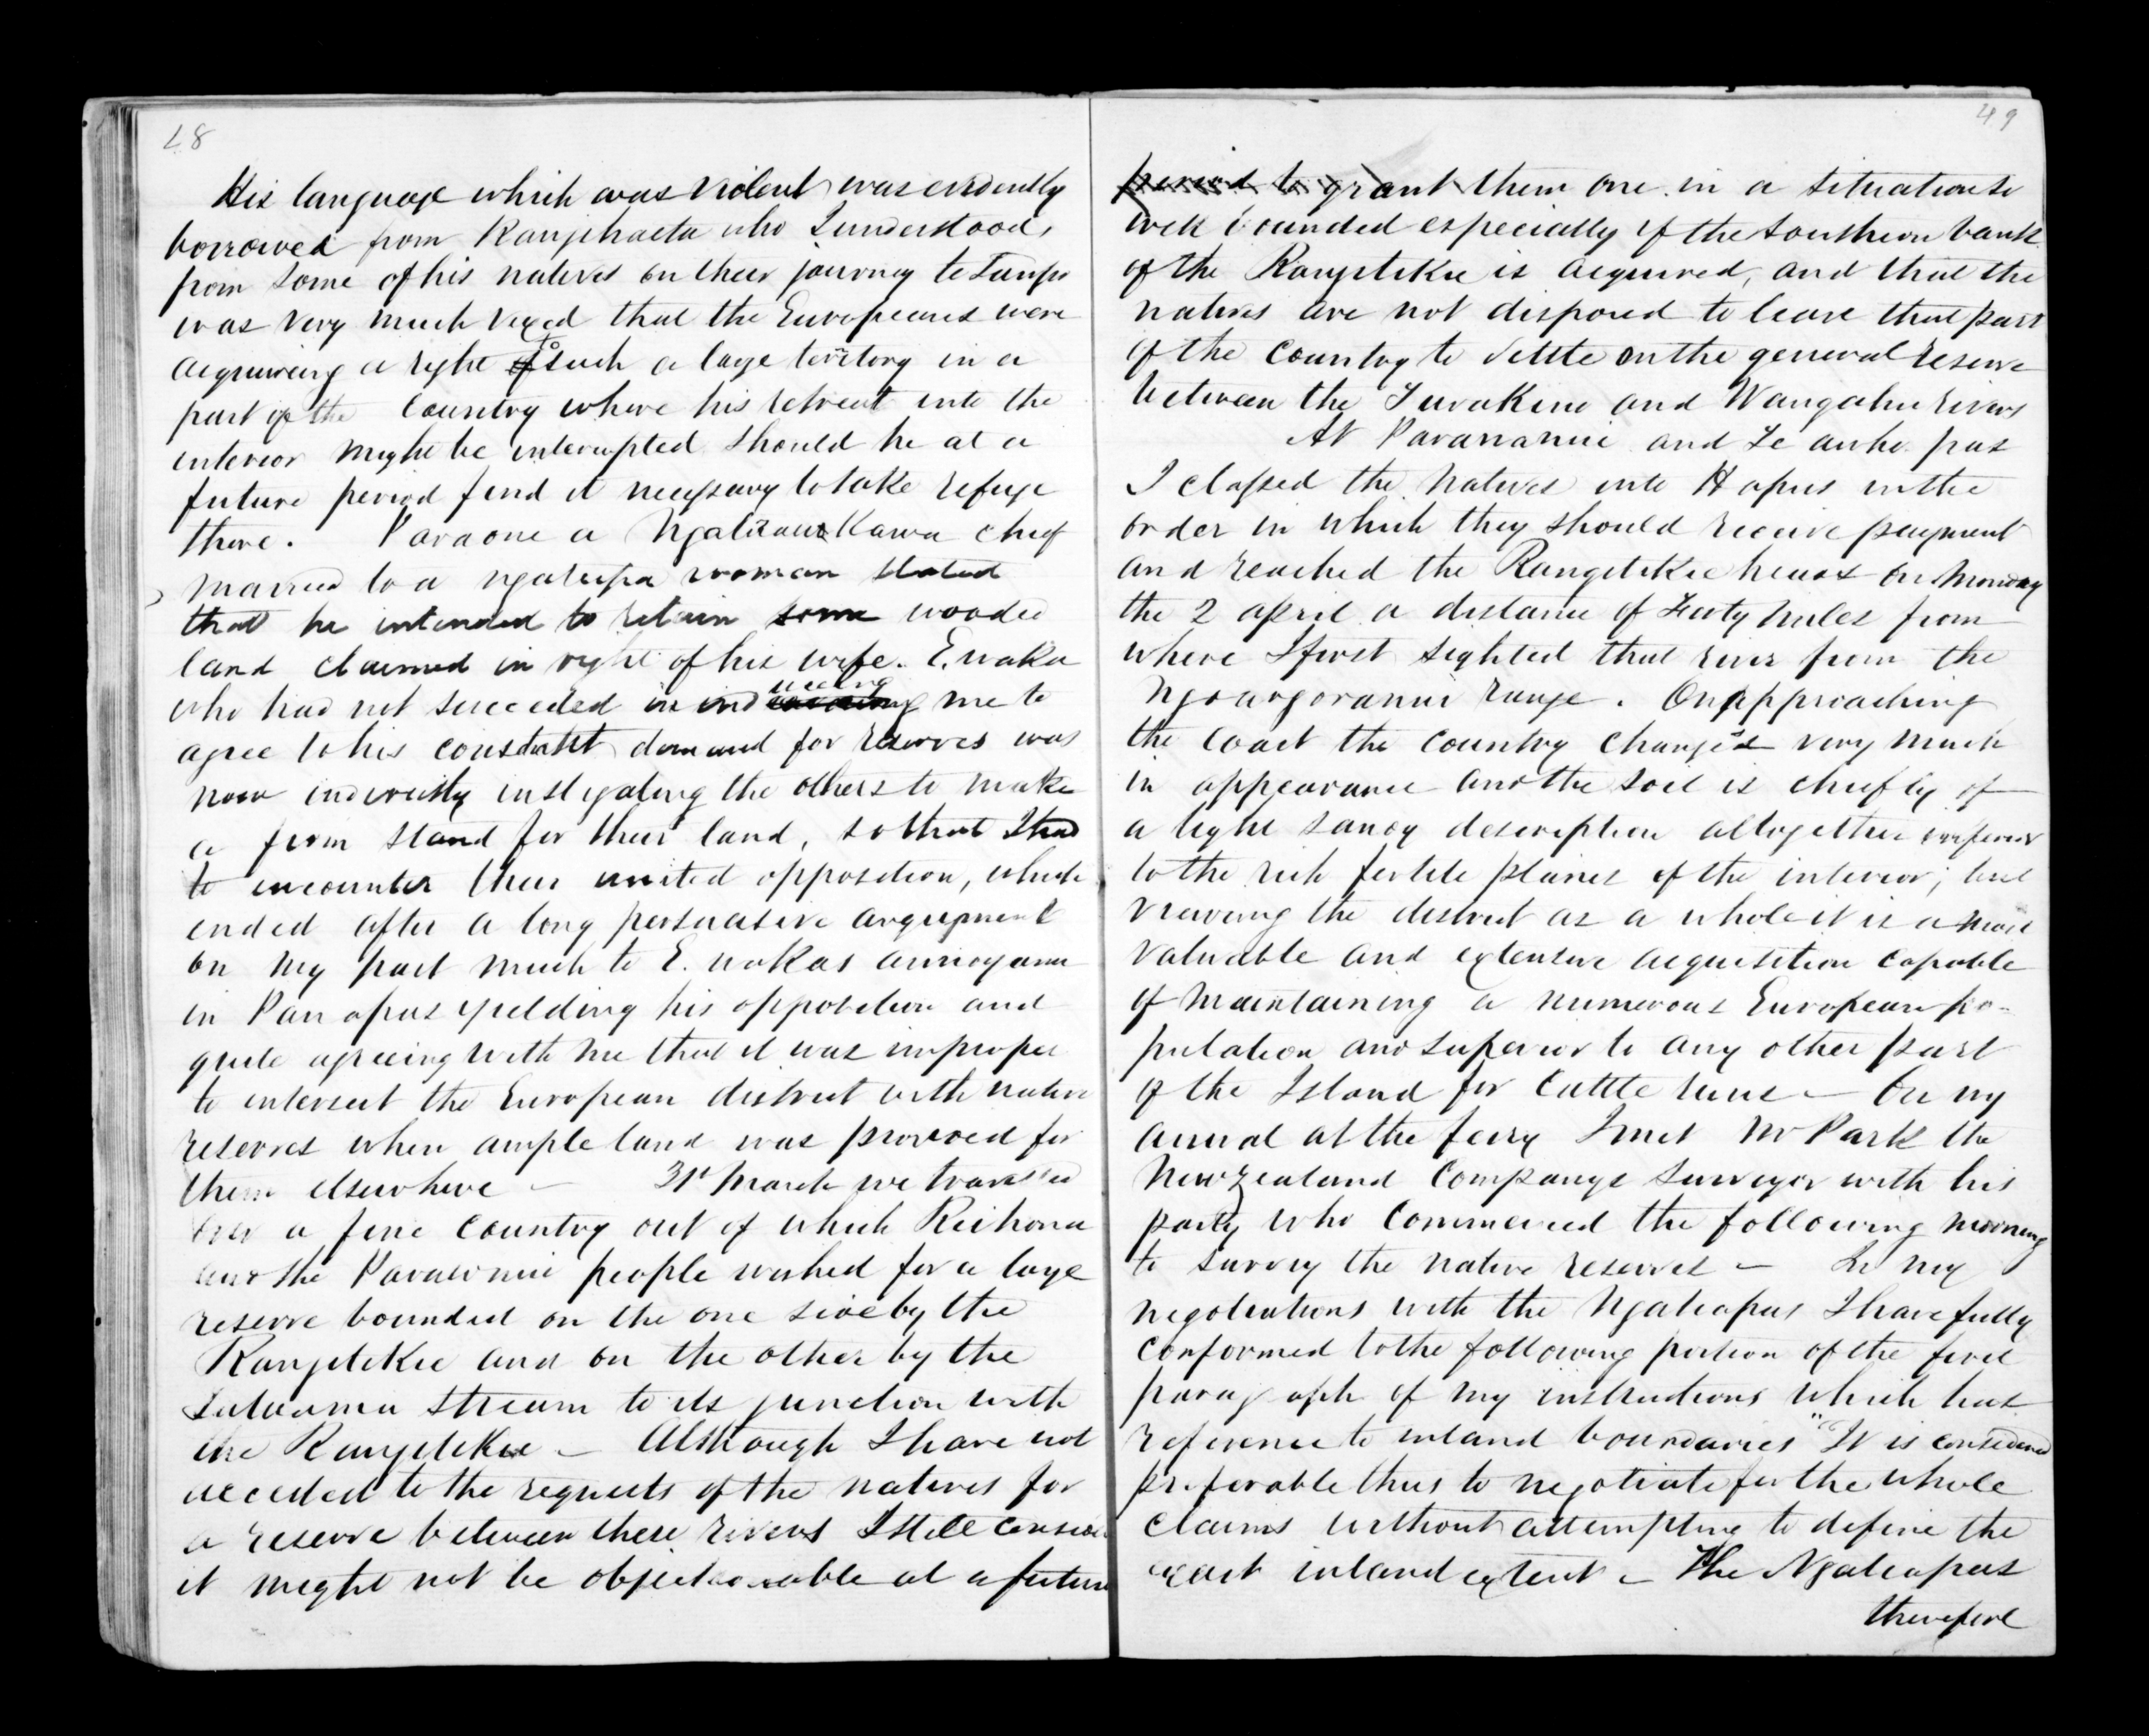 28
His language which was violent was evidently
borrowed from Rangihaeta who I understood,
from some of his natives on their journey to Taupo
was very much vexed that the Europeans were
acquiring a right to such a large territory in a
part of the Country where his retreat into the
interior might be interrupted should he at a
future period find it necessary to take refuge
there. Paraone a Ngatiraukawa chief
married to a ngatiapa woman stated
that he intended to retain some wooded
land claimed in right of his wife. E. waka
who had not succeeded in inducing me to
agree to his constant demand for reserves was
now indirectly instigating the others to make
a firm stand for their land, so that I had
to encounter their united opposition, which
ended after a long persuasive argument
on my part much to E. wakas annoyance
in Panapas yielding his opposition and
quite agreeing with me that it was improper
to intersect the European district with native
reserves when ample land was provided for
them elsewhere – 31st March we traversed
over a fine Country out of which Reihana
and the people wished for a large
reserve bounded on the one side by the
Rangitikie and on the other by the
stream to its junction with
the Rangitikie – Although I have not
acceded to the requests of the natives for
a reserve between these rivers I still consider
it might not be objectionable at a future
49
period to grant them one in a situation so
well bounded especially if the southern bank
of the Rangitikie is acquired, and that the
natives are not disposed to leave that part
of the Country to settle on the general reserve
between the Turakino and Wangaehu rivers
At Parawanui and Te awho pas
I classed the natives into Hapus in the
order in which they should receive payment
and reached the Rangitikie heads on Monday
the 2 april a distance of Forty miles from
where I first sighted that river from the
range. On approaching
the Coast the Country changed very much
in appearance and the soil is chiefly of
a light sandy description altogether inferior
to the rich fertile plains of the interior; but
viewing the district as a whole it is a most
valuable and extensive acquisition capable
of maintaining a numerous European po-
pulation and superior to any other part
of the Island for Cattle runs – On my
arrival at the ferry I met Mr Park the
New Zealand Companys Surveyor with his
party who Commenced the following morning
to survey the native reserves – In my
negotiations with the Ngatiapas I have fully
conformed to the following portion of the first
paragraph of my instructions which has
reference to inland boundaries "It is considered
preferable thus to negotiate for the whole
claims without attempting to define the
exact inland extent – The Ngatiapas
therefore